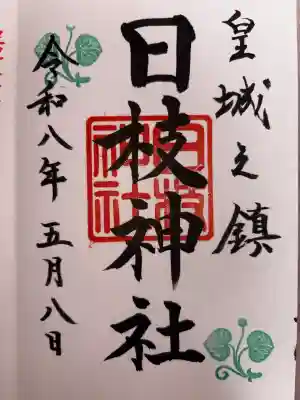 皇城之鎮
日枝神社
令和八年五月八日